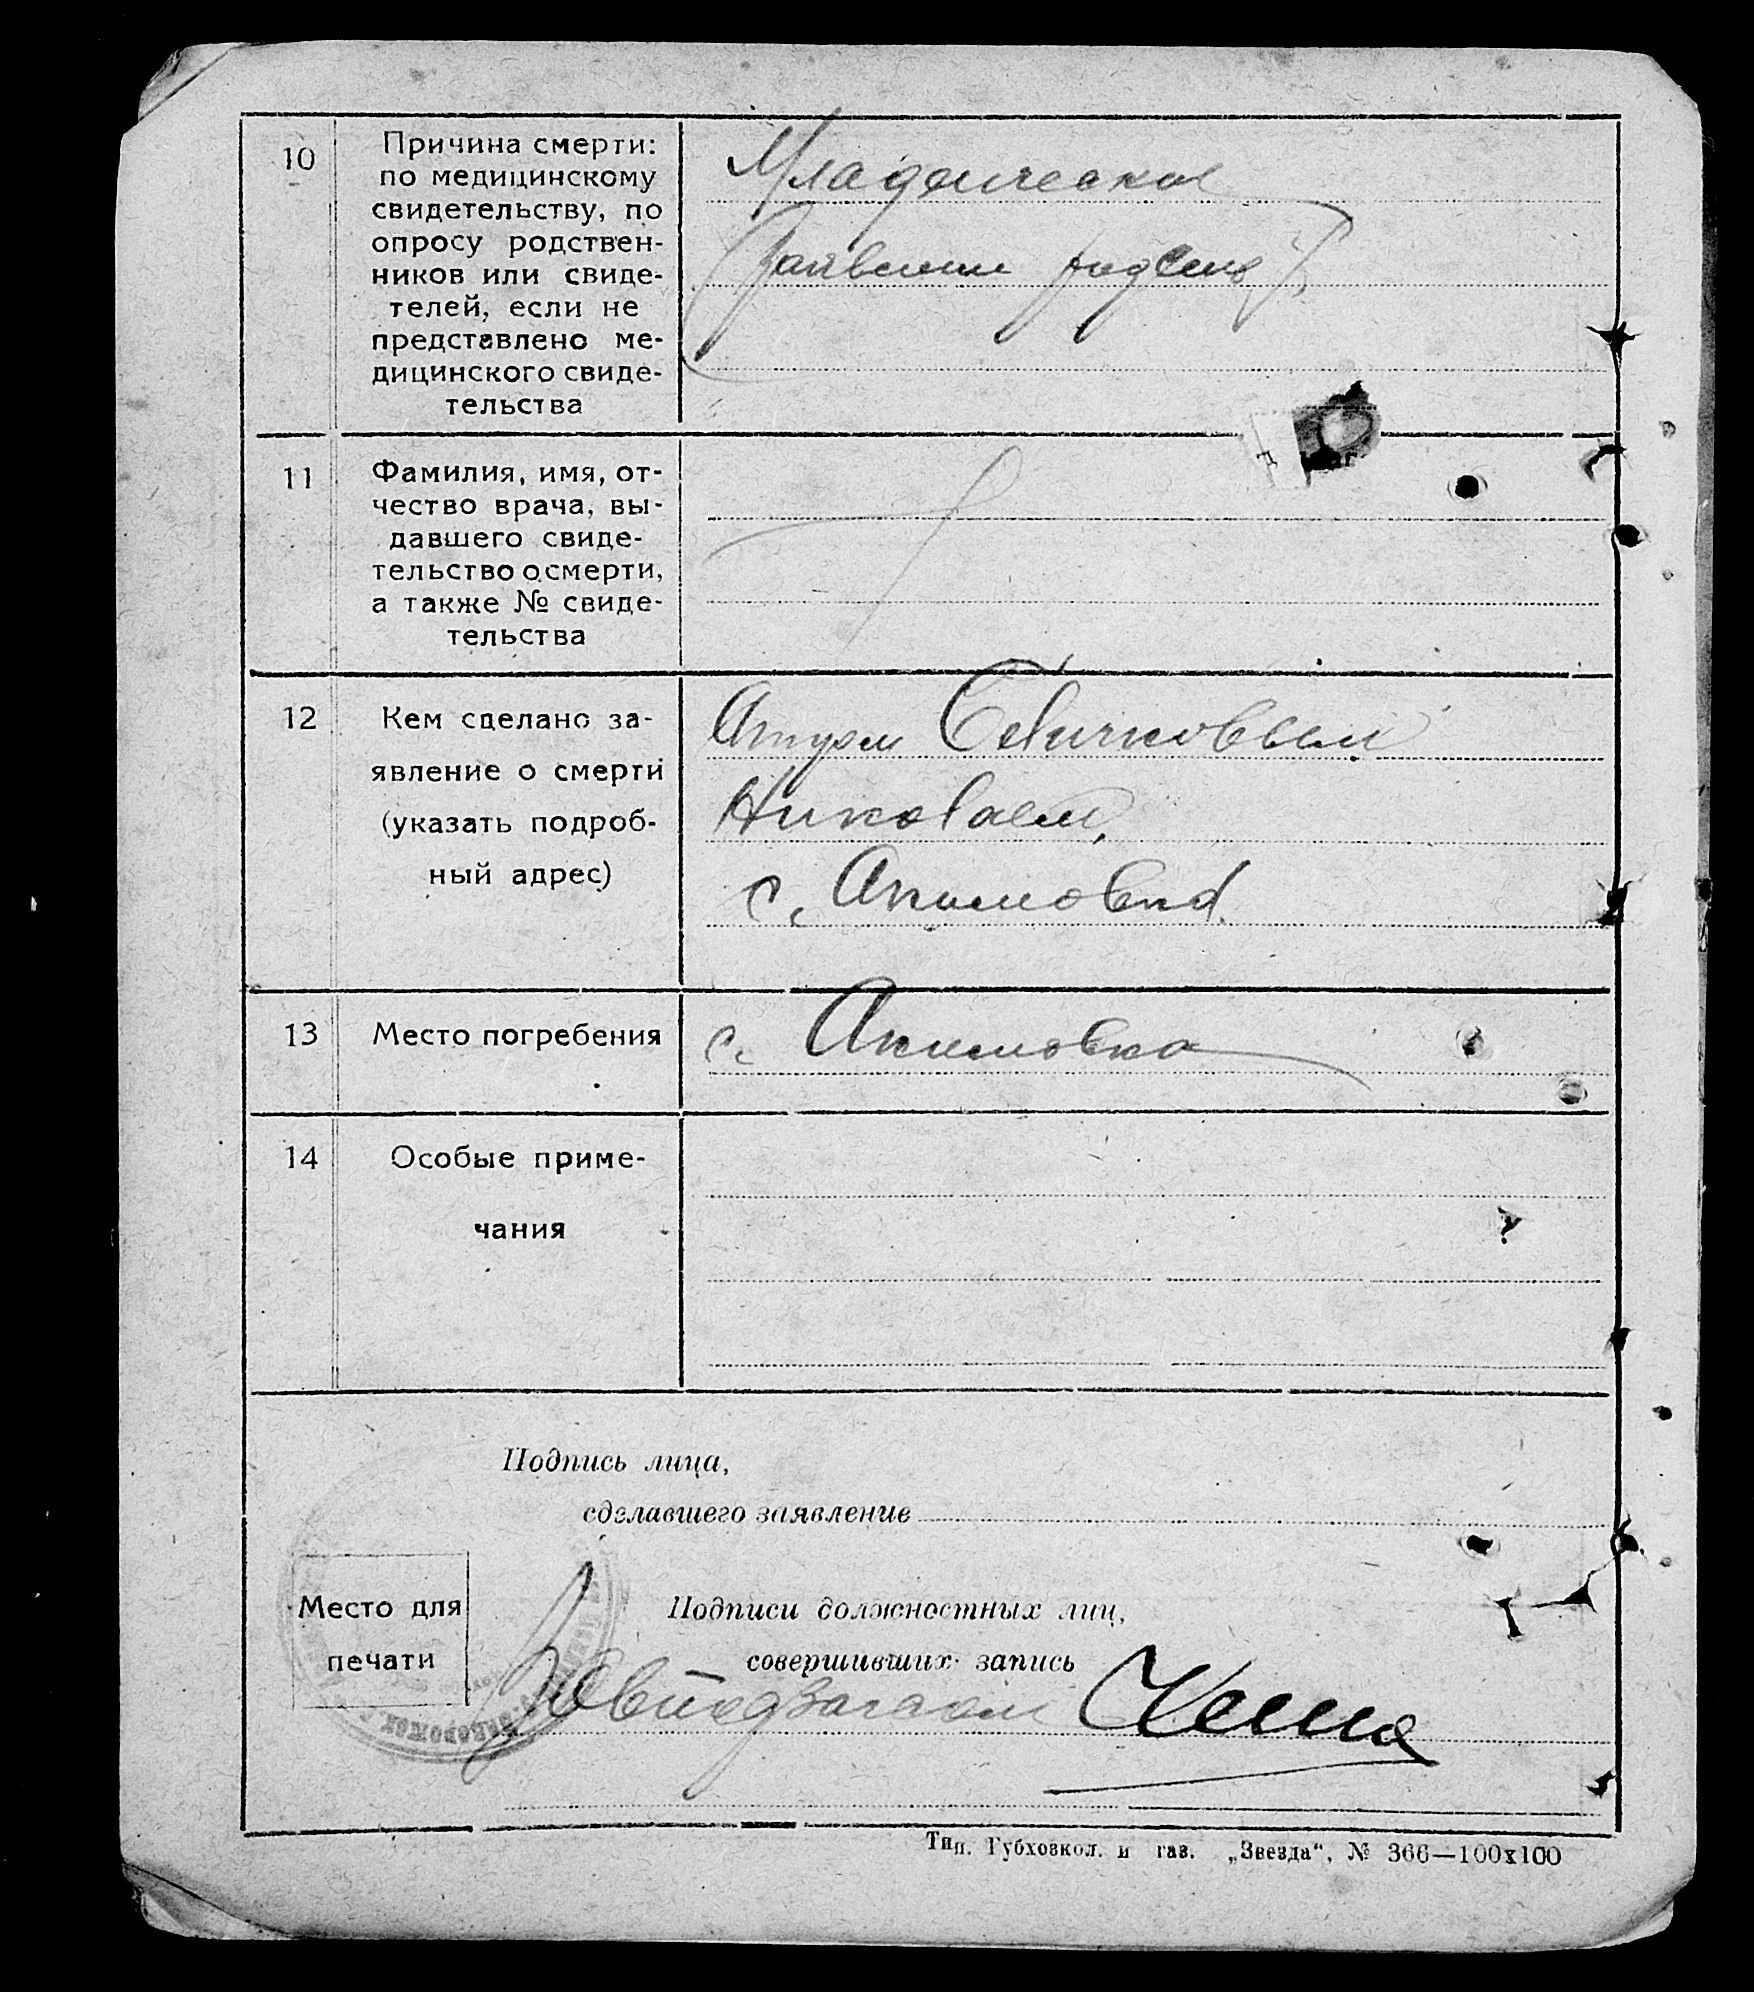 10
Причина смерти:
по медицинскому
свидетельству, по
опросу родствен-
ников или свиде-
телей, если не
представлено ме-
дицинского свиде-
тельства
Младенческая
11
Фамилия, имя, от-
чество врача, вы-
давшего свиде-
тельство о смерти,
а также № свиде-
тельства
12
Кем сделано за-
явление о смерти
(указать подроб-
ный адрес)
Отцом
Николаем,
с. Акимовка
13
Место погребения
с. Акимовка
14
Особые приме-
чания
Подпись лица,
сделавшего заявление
Место для
печати
Подписи должностных лиц,
совершивших запись
Тип. Губхозкол. и газ. „Звезда“, № 366—100х100